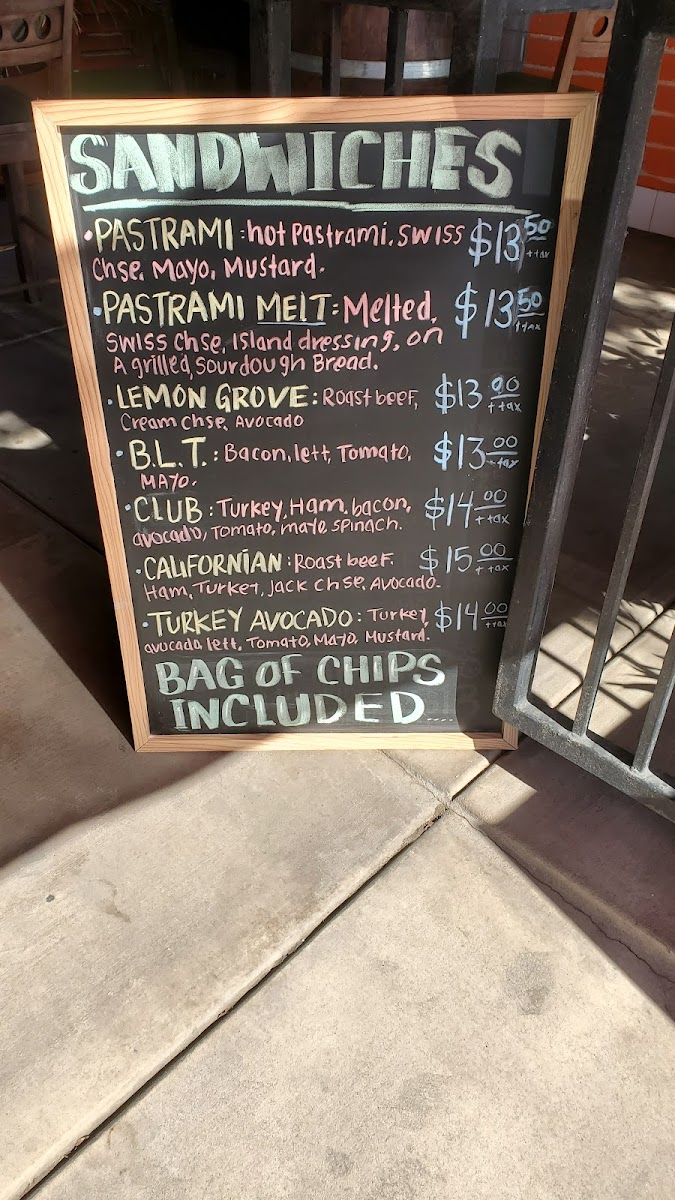 SANDWICHES
• PASTRAMI : hot Pastrami, SWISS $13 50 + tax
Chse, Mayo, Mustard.
• PASTRAMI MELT : Melted, $13 50 + tax
SWISS Chse, Island dressing, on
A grilled, Sourdough Bread.
• LEMON GROVE : Roast beef, $13 00 + tax
Cream chse, Avocado
• B.L.T. : Bacon, lett, Tomato, $13 00 + tax
MAYO.
• CLUB : Turkey, Ham, bacon, $14 00 + tax
avocado, Tomato, mayo spinach.
• CALIFORNIAN : Roast beef. $15 00 + tax
Ham, Turkey, Jack chse, Avocado.
• TURKEY AVOCADO : Turkey, $14 00 + tax
avocado, lett, Tomato, Mayo, Mustard.
BAG OF CHIPS
INCLUDED....